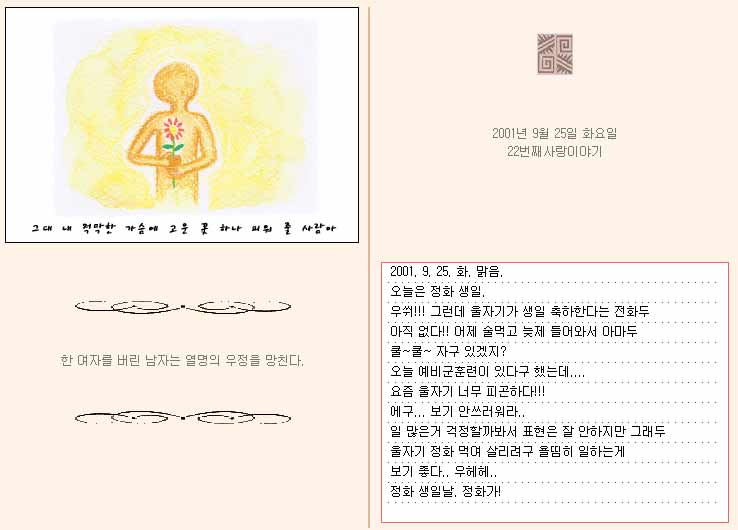 그대 내 적막한 가슴에 고운 꽃 하나 피워 줄 사람아
한 여자를 버린 남자는 열명의 우정을 망친다.
2001년 9월 25일 화요일
22번째사랑이야기
2001. 9. 25. 화. 맑음.
오늘은 정화 생일.
우쒸!!! 그런데 울자기가 생일 축하한다는 전화두
아직 없다!! 어제 술먹고 늦제 들어와서 아마두
쿨~쿨~ 자구 있겠지?
오늘 예비군훈련이 있다구 했는데....
요즘 울자기 너무 피곤하다!!!
에구... 보기 안쓰러워라..
일 많은거 걱정할까봐서 표현은 잘 안하지만 그래두
울자기 정화 먹여 살리려구 흘띰히 일하는게
보기 좋다.. 우헤헤..
정화 생일날. 정화가!